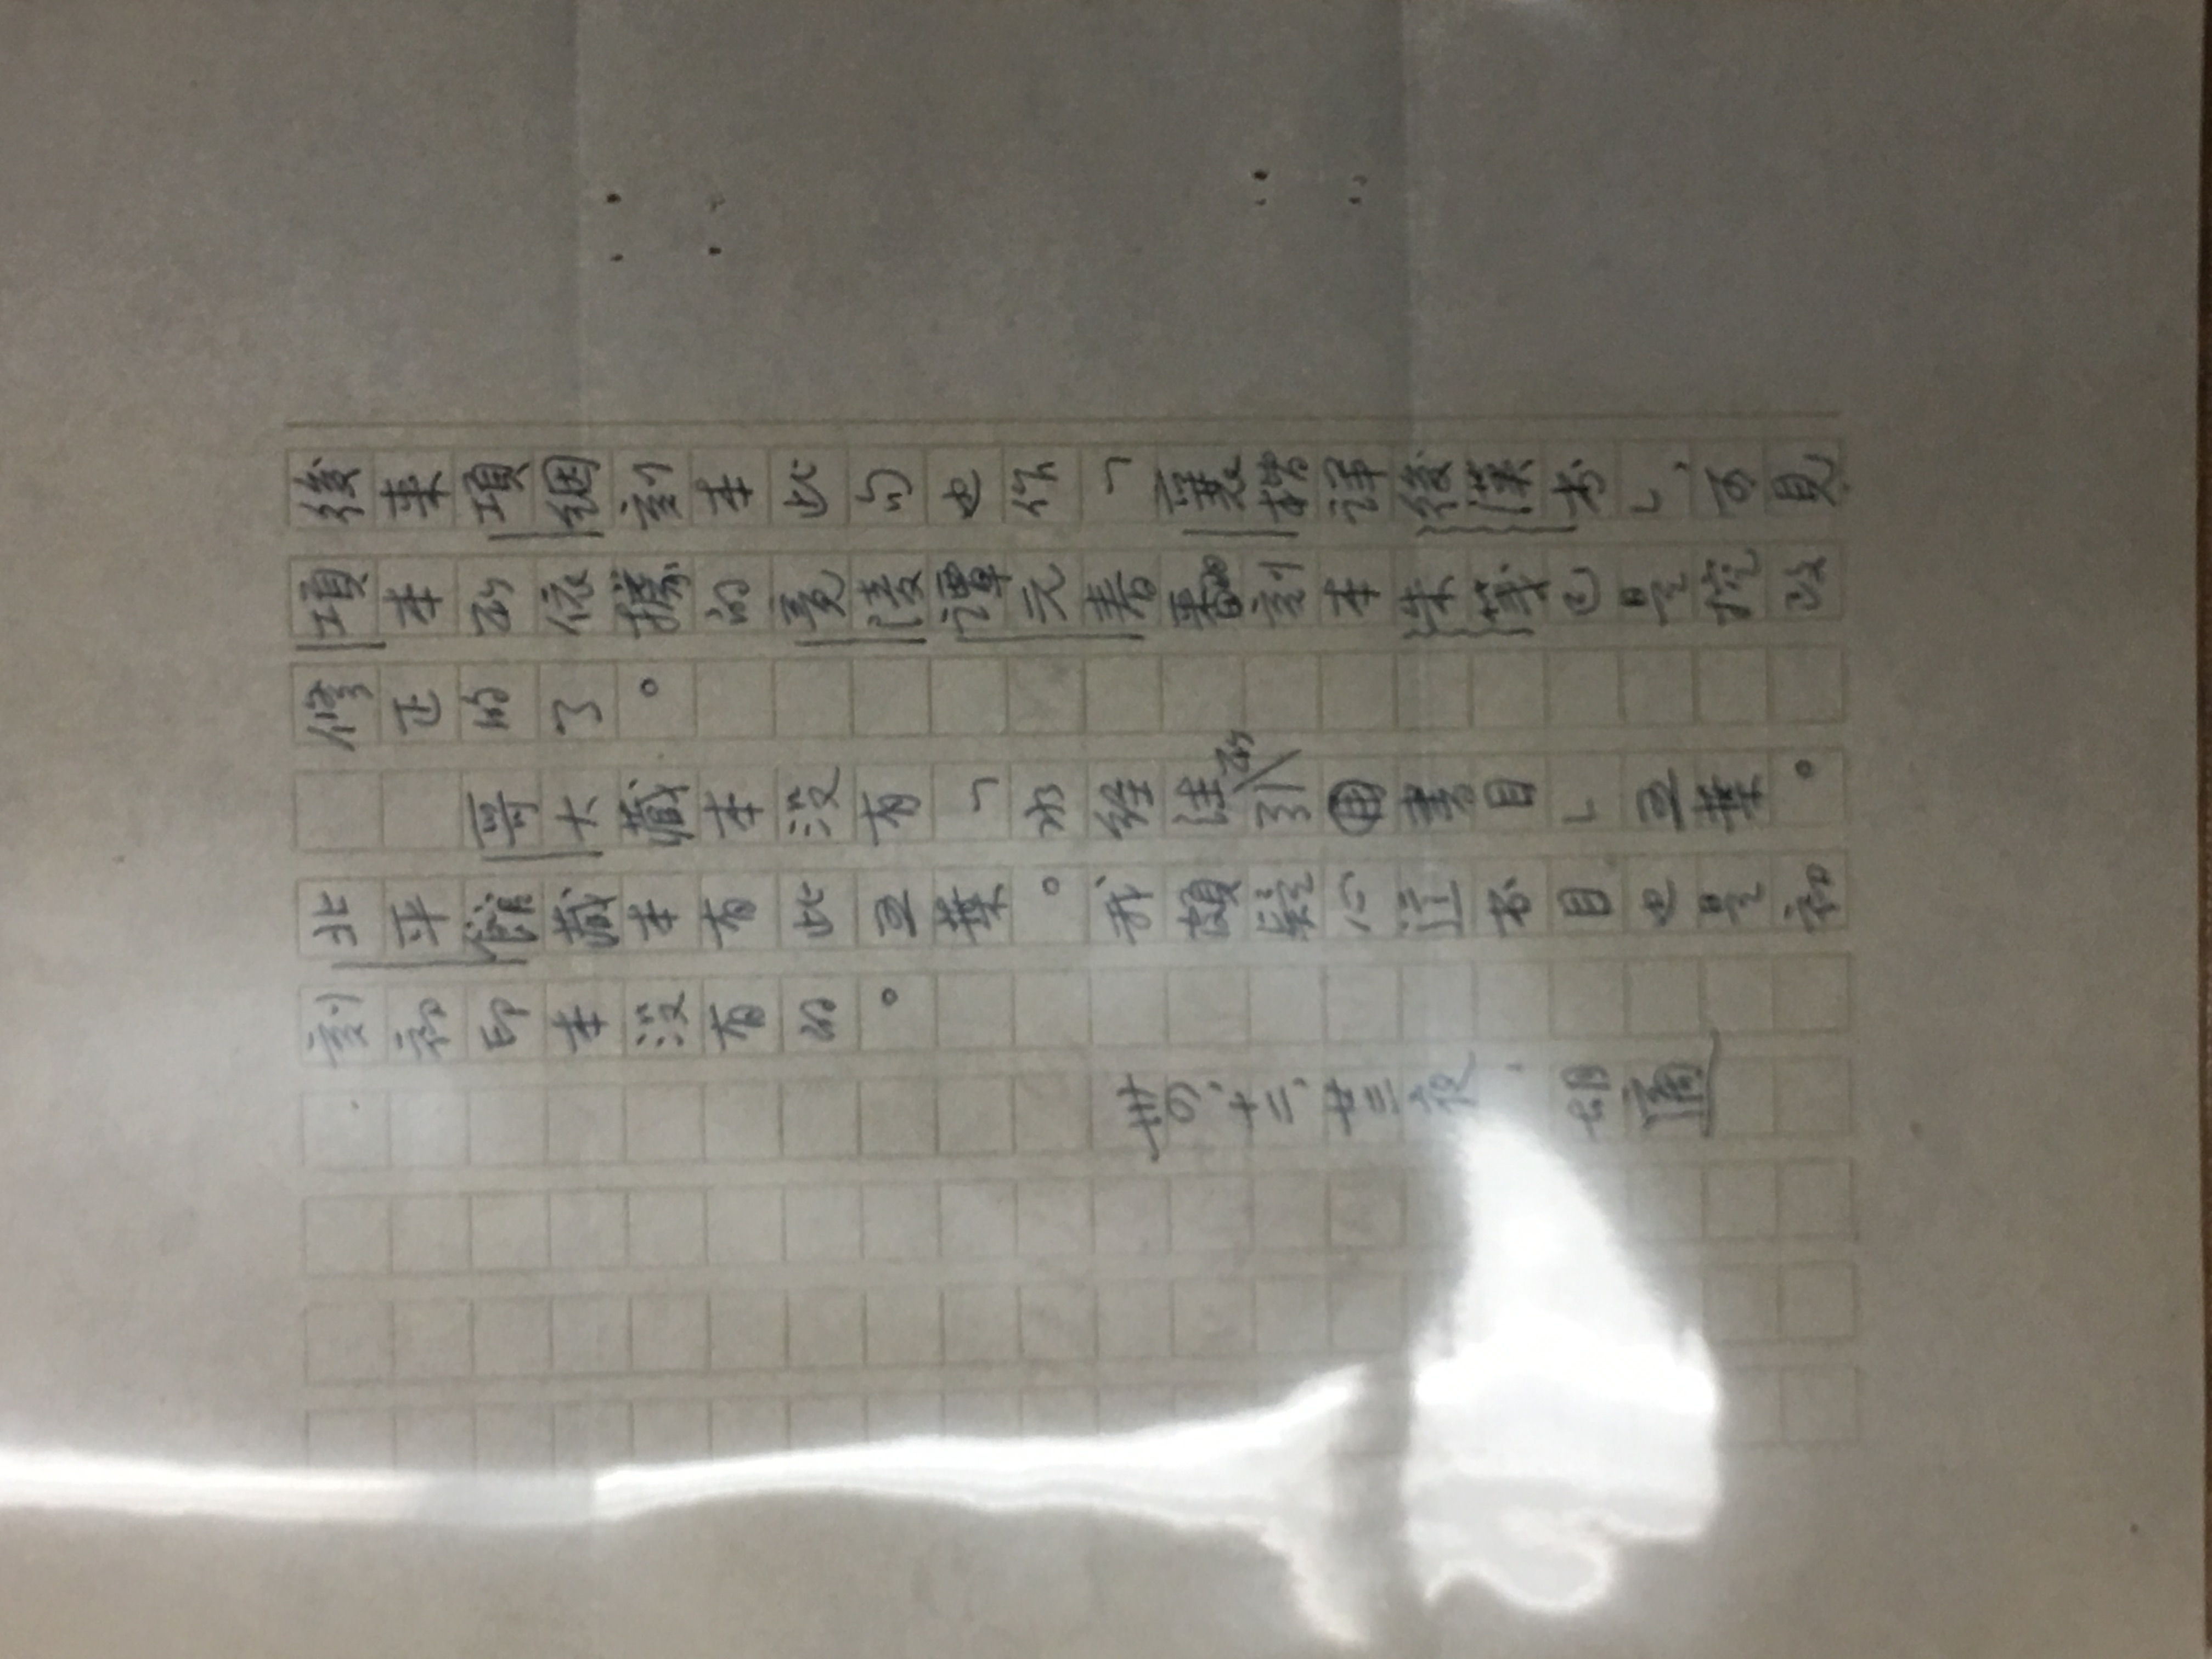 後来項絪刻本此句也作「襄楷詳後漢書」，可見
項本所依據的竟陵譚元春翻刻本朱箋已是挖改
修正的了。
哥大藏本没有「水经注所引書目」五葉。
北平館藏本有此五葉。我頗疑心這書目也是初
刻初印本没有的。
卅四、十二、廿三夜，胡適